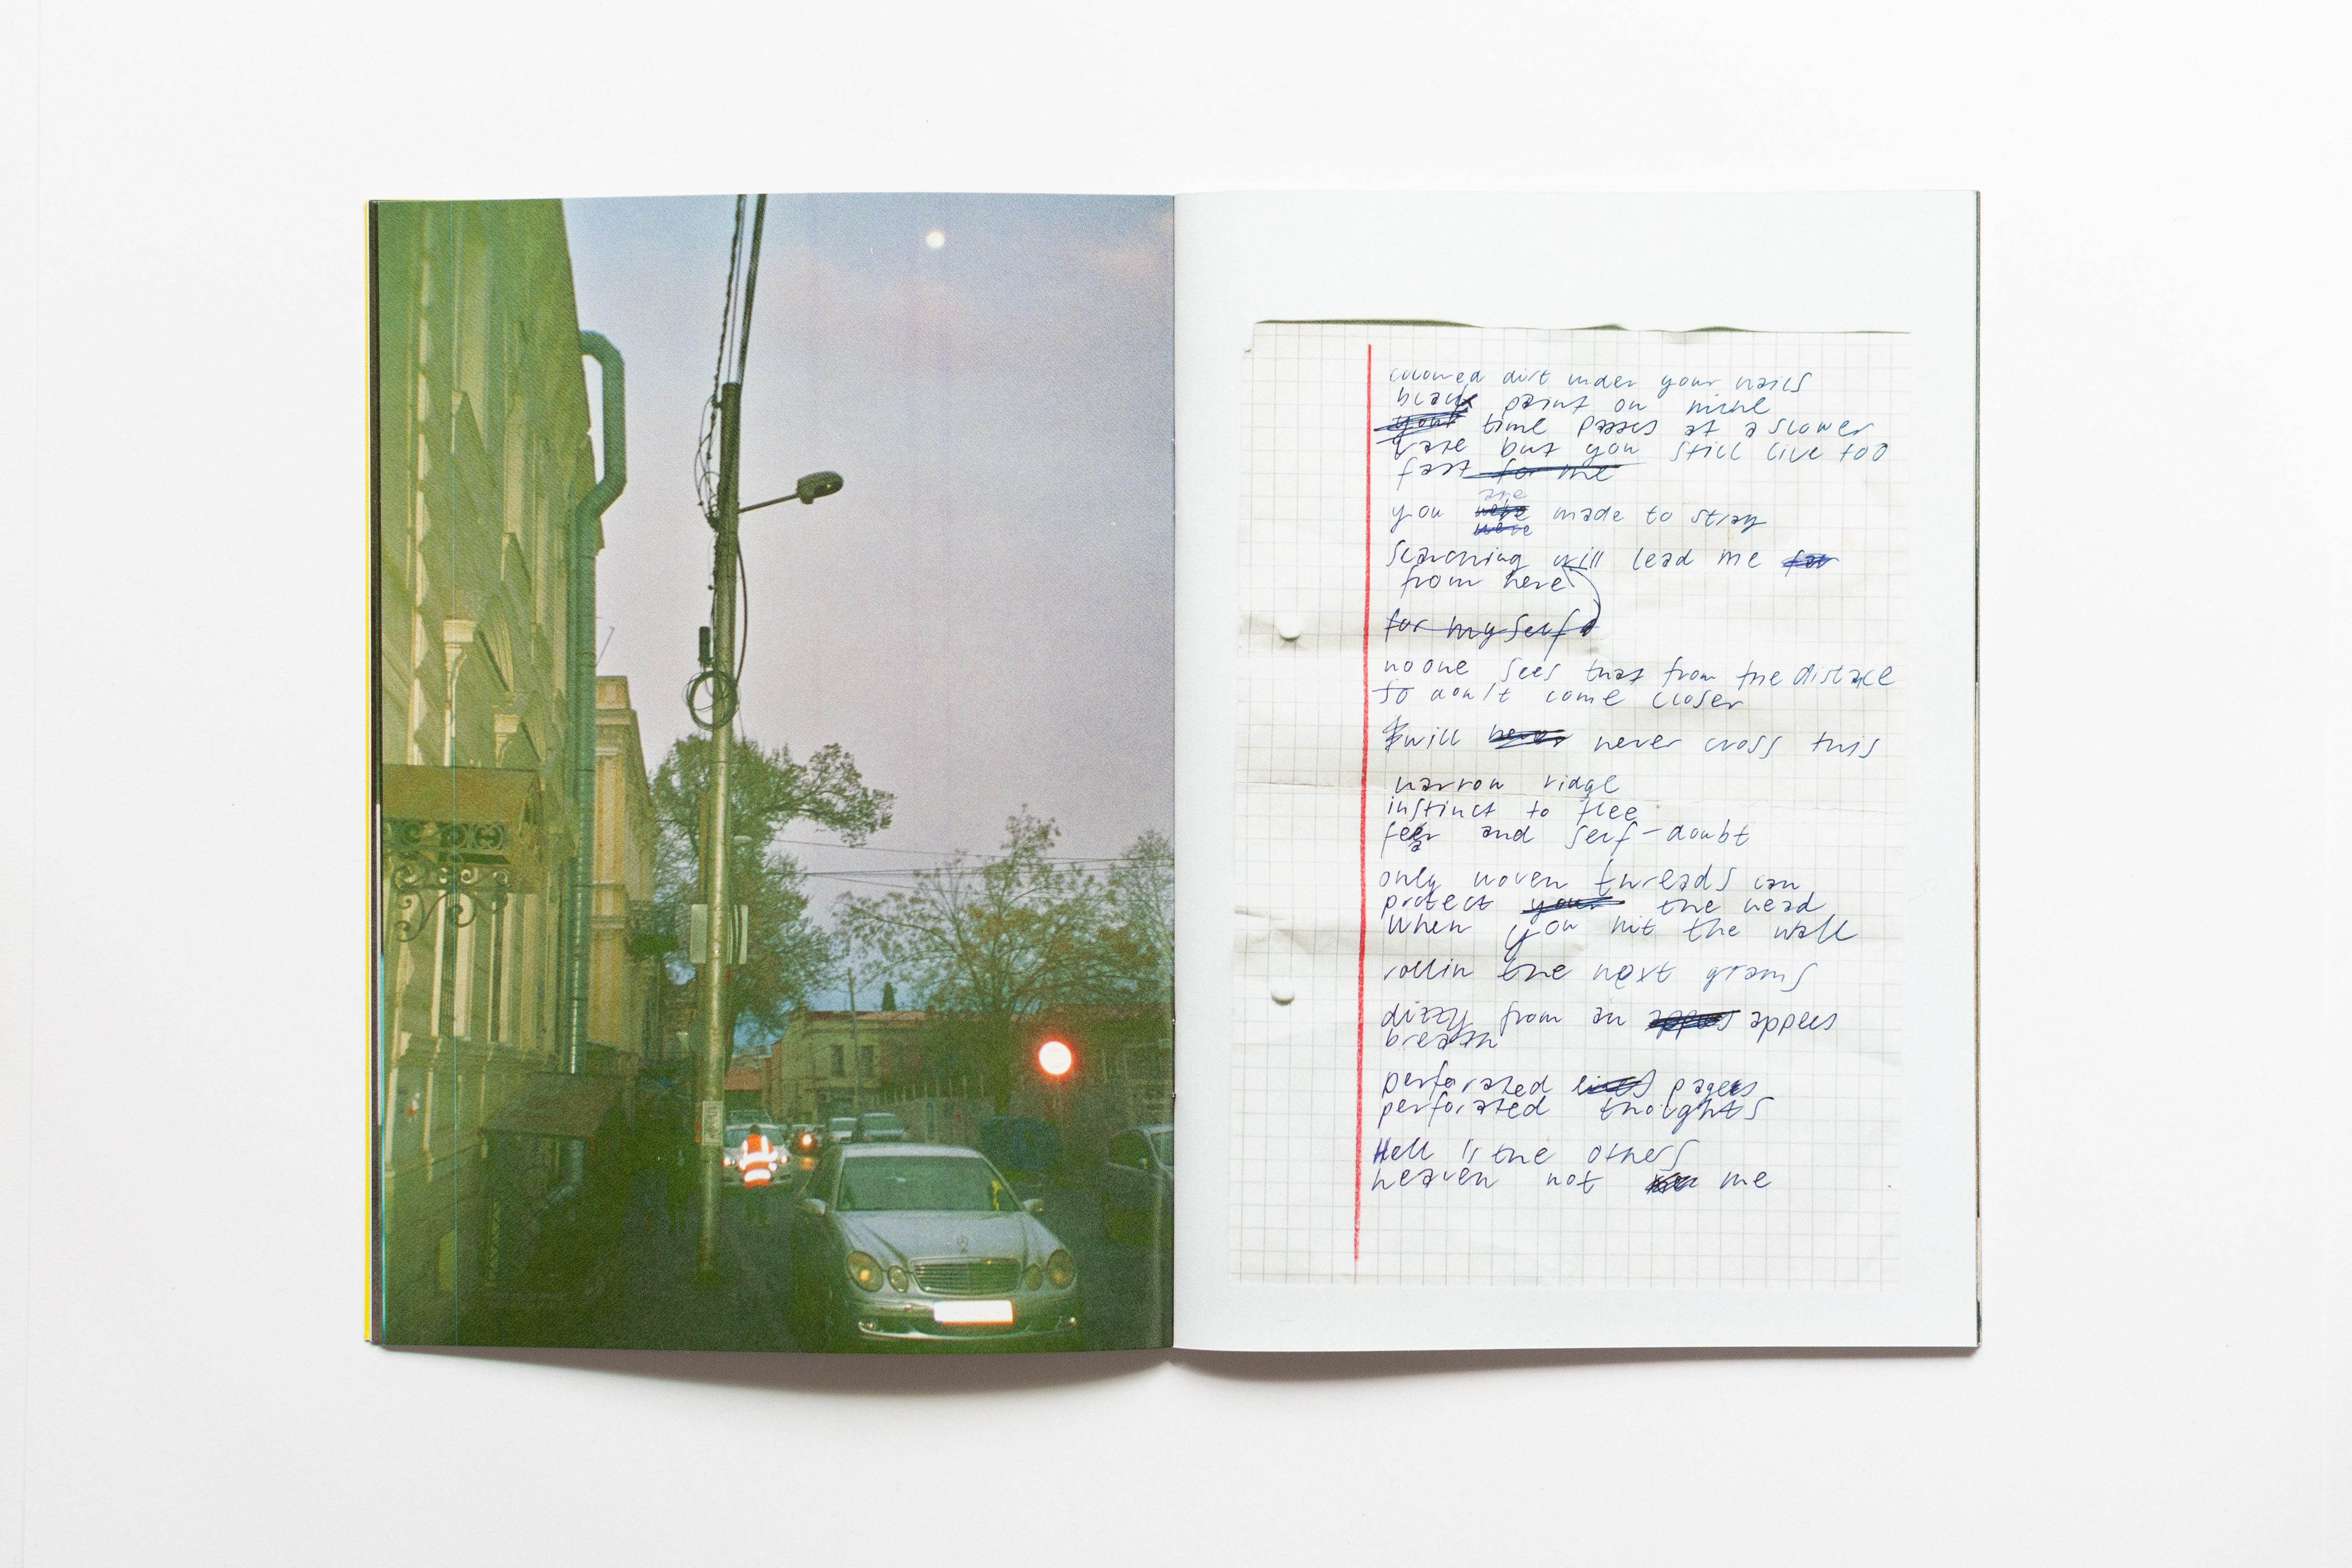 colored dirt under your nails
black paint on mine
your time passes at a slower
rate but you still live too
fast for me
are
you were made to stray
were
searching will lead me far
from here
for myself
no one sees that from the distace
so don't come closer
I will never never cross this
narrow ridge
instinct to flee
fear and self-doubt
only woven threads can
protect your the head
When you hit the wall
rollin the next grams
dizzy from an appels appels
breath
perforated lines pages
perforated thoights
Hell is the others
heaven not me